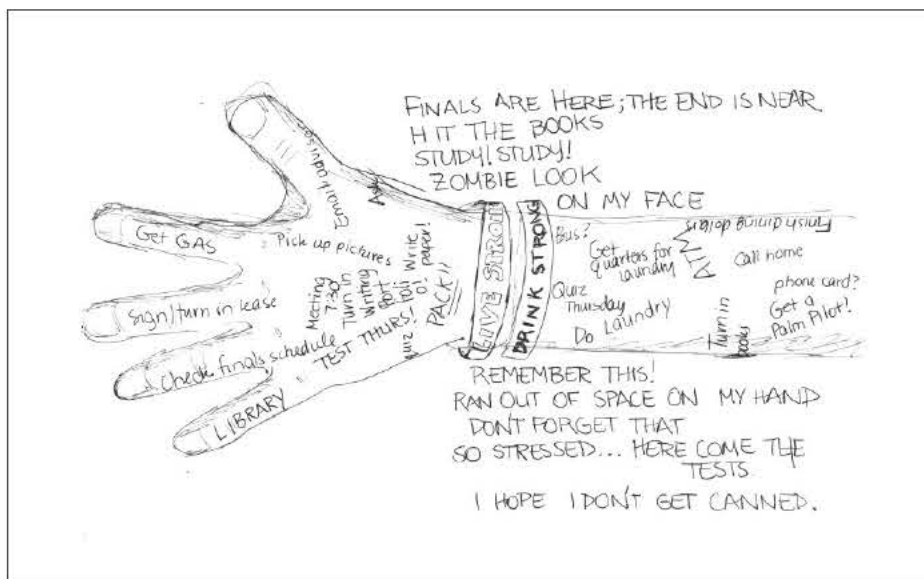 FINALS ARE HERE; THE END IS NEAR
HIT THE BOOKS
STUDY! STUDY!
ZOMBIE LOOK
ON MY FACE
Email advisor
Ask
Get GAS
Pick up pictures
Sign/turn in lease
Check finals schedule
LIBRARY
Meeting
7:30
Turn in
Writing
Port
foli
o!
Write
paper!
TEST THURS!
quiz
PACK!!
LIVE STRONG
DRINK STRONG
Bus?
Get
quarters for
laundry
ATM
Finish dining dollars
Call home
Quiz
Thursday
Do Laundry
phone card?
Get a
Palm Pilot!
Turn in
books
REMEMBER THIS!
RAN OUT OF SPACE ON MY HAND
DON'T FORGET THAT
SO STRESSED... HERE COME THE
TESTS.
I HOPE I DON'T GET CANNED.